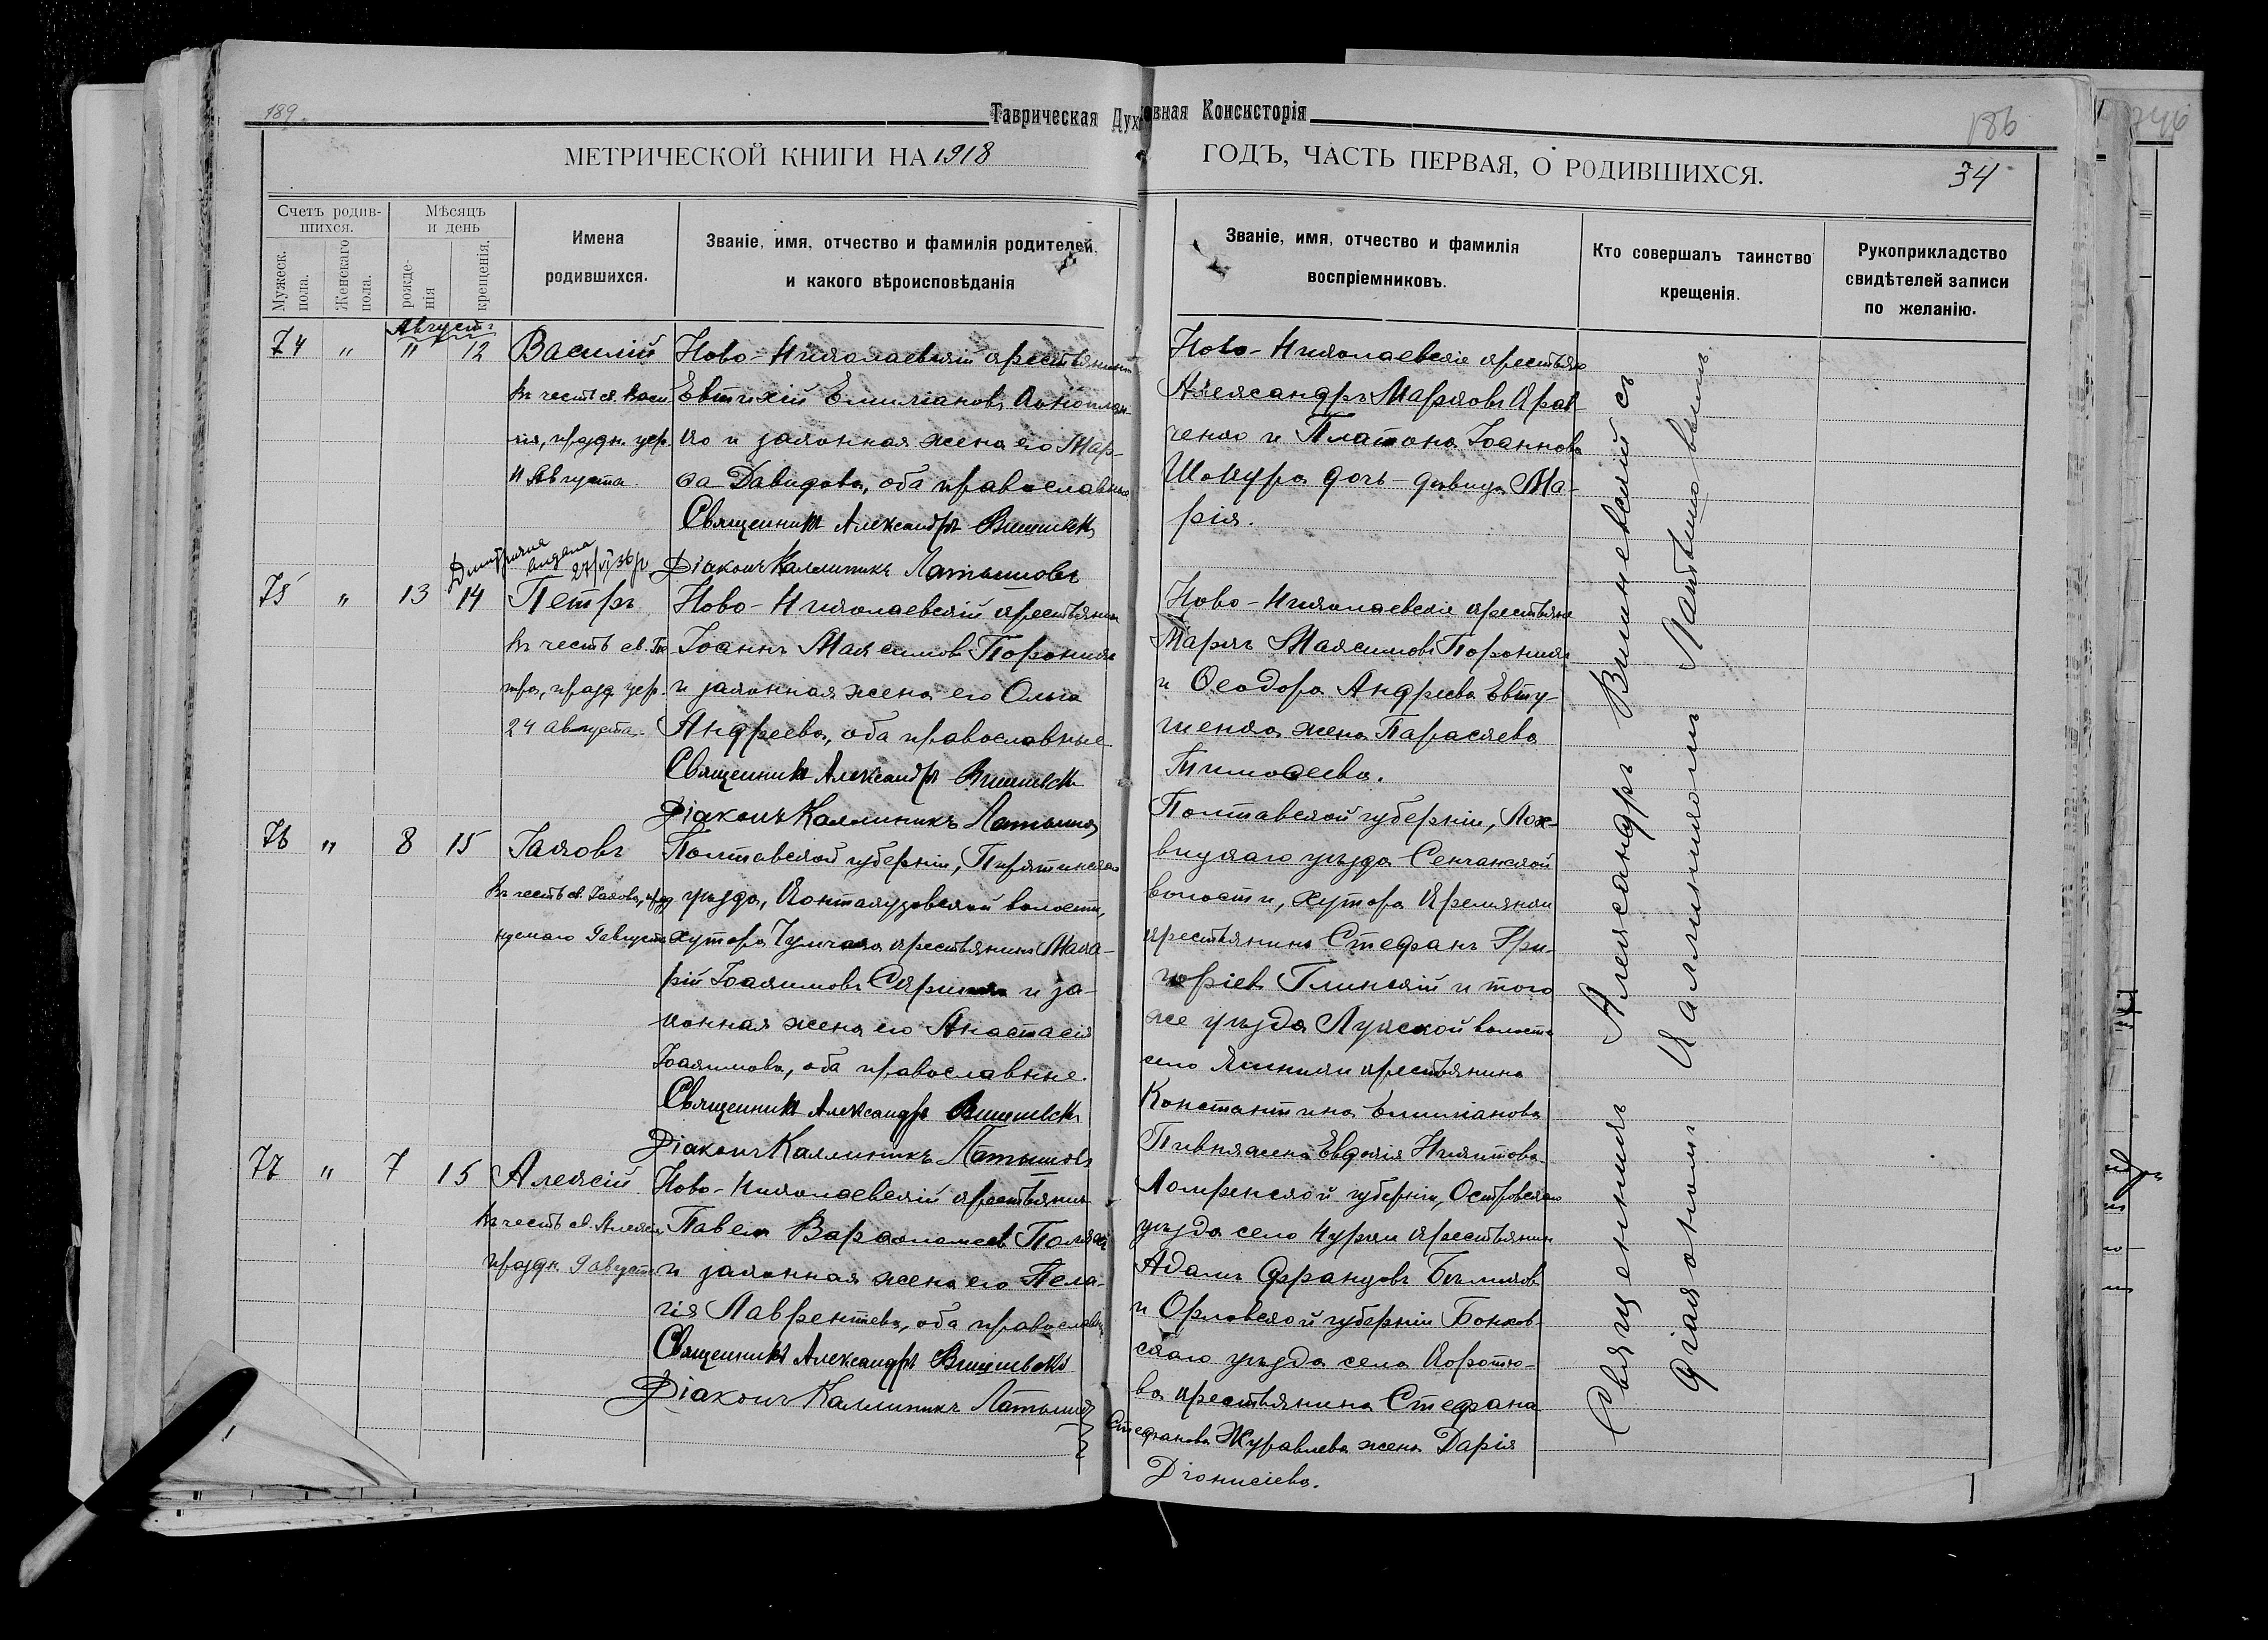 189
Таврическая Духовная Консисторія
186
746
МЕТРИЧЕСКОЙ КНИГИ НА 1918 ГОДЪ, ЧАСТЬ ПЕРВАЯ, О РОДИВШИХСЯ.
34
Счетъ родив-
шихся.
Мужеск.
пола.
Женскаго
пола.
Мѣсяцъ
и день
рожде-
нія
крещенія.
Имена
родившихся.
Званіе, имя, отчество и фамилія родителей,
и какого вѣроисповѣданія
Званіе, имя, отчество и фамилія
воспріемниковъ.
Кто совершалъ таинство
крещенія.
Рукоприкладство
свидѣтелей записи
по желанію.
Августъ
74 " " 12 Василій
въ честь св. Васи
лія, праздн. цер.
11 Августа
Ново-Николаевскій крестьянинъ
Евтихій Емиліановъ
ко и законная жена его Мар-
ѳа Давидова, оба православные
Священникъ Александръ Вишневскій
Діаконъ Каллиникъ Латышовъ
Ново-Николаевскіе крестьяне
Александръ Марковъ Крав
ченко и Платона Іоаннова
Шокура дочь-дѣвица Ма-
рія.
27/VI 36 р
75 " 13 14 Петръ
въ честь св. Пе
тра, празд. цер.
24 августа.
Ново-Николаевскій крестьянинъ
Іоаннъ Максимовъ Поронникъ
и законная жена его Ольга
Андреева, оба православные
Священникъ Александръ Вишневскій
Діаконъ Каллиникъ Латышовъ
Ново-Николаевскіе крестьяне
Маркъ Максимовъ Поронникъ
и Ѳеодора Андреева Евту-
шенка жена Параскева
Тимоѳеева.
76 " 8 15 Іаковъ
въ честь св. Іакова, празд
нуемаго 9 августа
Полтавской губерніи, Пирятинскаго
уѣзда, волости,
хутора крестьянинъ Мака-
рій Іоакимовъ и за-
конная жена его Анастасія
Іоакимова, оба православные.
Священникъ Александръ Вишневскій
Діаконъ Каллиникъ Латышовъ
Полтавской губерніи, Лох-
вицкаго уѣзда Сенчанской
волости, хутора
крестьянинъ Стефанъ Гри-
горіевъ Глинскій и того
же уѣзда Лукской волости
село крестьянина
Константина Емиліанова
жена Евдокія Никитова
77 " 7 15 Алексій
въ честь св. Алексія
праздн. 9 августа
Ново-Николаевскій крестьянинъ
Павелъ Варѳоломеевъ
и законная жена его Пела-
гія Лаврентіева, оба православные
Священникъ Александръ Вишневскій
Діаконъ Каллиникъ Латышовъ
Ломжинской губерніи, Островскаго
уѣзда село крестьянинъ
Адамъ Францовъ
и Орловской губерніи
скаго уѣзда села
ва крестьянина Стефана
Стефанова Журавлева жена Дарія
Діонисіева.
Священникъ Александръ Вишневскій съ
діакономъ Каллиникомъ Латышовымъ